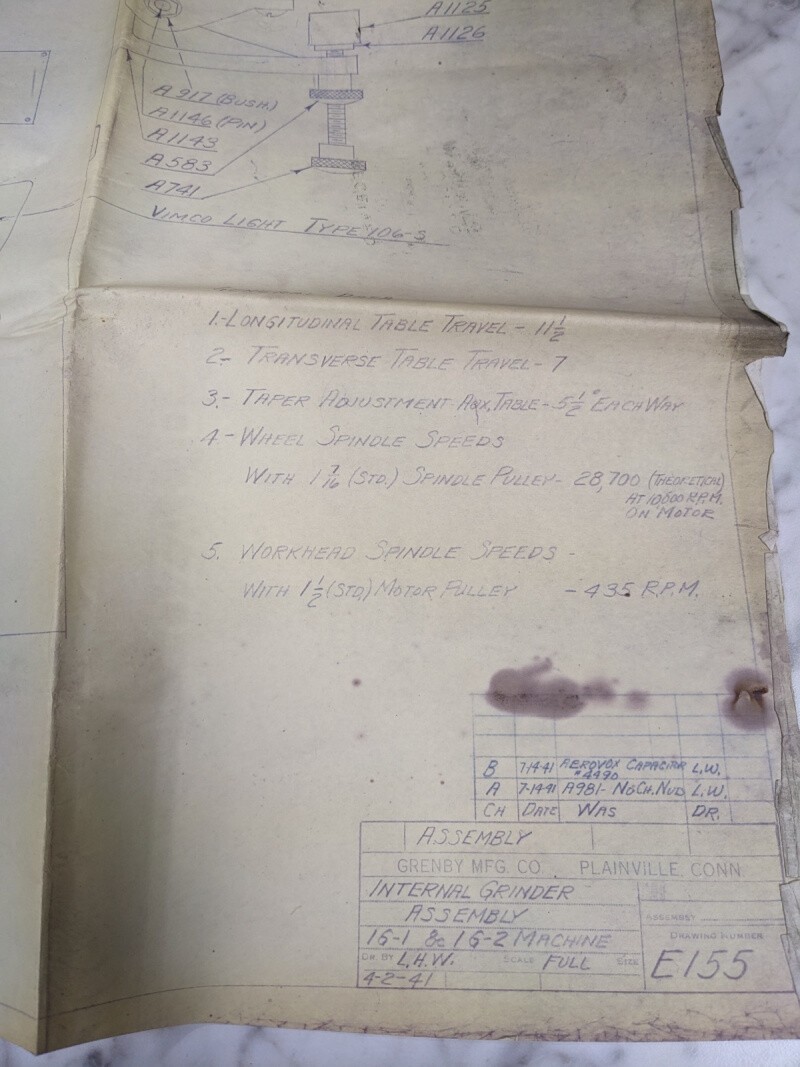 A1125
A1126
A917 (BUSH.)
A1146 (PIN)
A1143
A583
A741
VIMCO LIGHT TYPE 106-S
1.-LONGITUDINAL TABLE TRAVEL - 11 1/2
2.- TRANSVERSE TABLE TRAVEL - 7
3.- TAPER ADJUSTMENT AUX. TABLE - 5 1/2° EACH WAY
4 - WHEEL SPINDLE SPEEDS
WITH 1 7/16 (STD.) SPINDLE PULLEY - 28,700 (THEORETICAL)
AT 10,600 R.P.M.
ON MOTOR
5. WORKHEAD SPINDLE SPEEDS -
WITH 1 1/2 (STD.) MOTOR PULLEY - 435 R.P.M.
B 7-14-41 AEROVOX CAPACITOR L.W.
#4490
A 7-14-41 A981- L.W.
CH DATE WAS DR.
ASSEMBLY
GRENBY MFG. CO. PLAINVILLE, CONN.
INTERNAL GRINDER
ASSEMBLY
ASSEMBLY
16-1 & 16-2 MACHINE
DRAWING NUMBER
DR. BY L.H.W. SCALE FULL SIZE E155
4-2-41